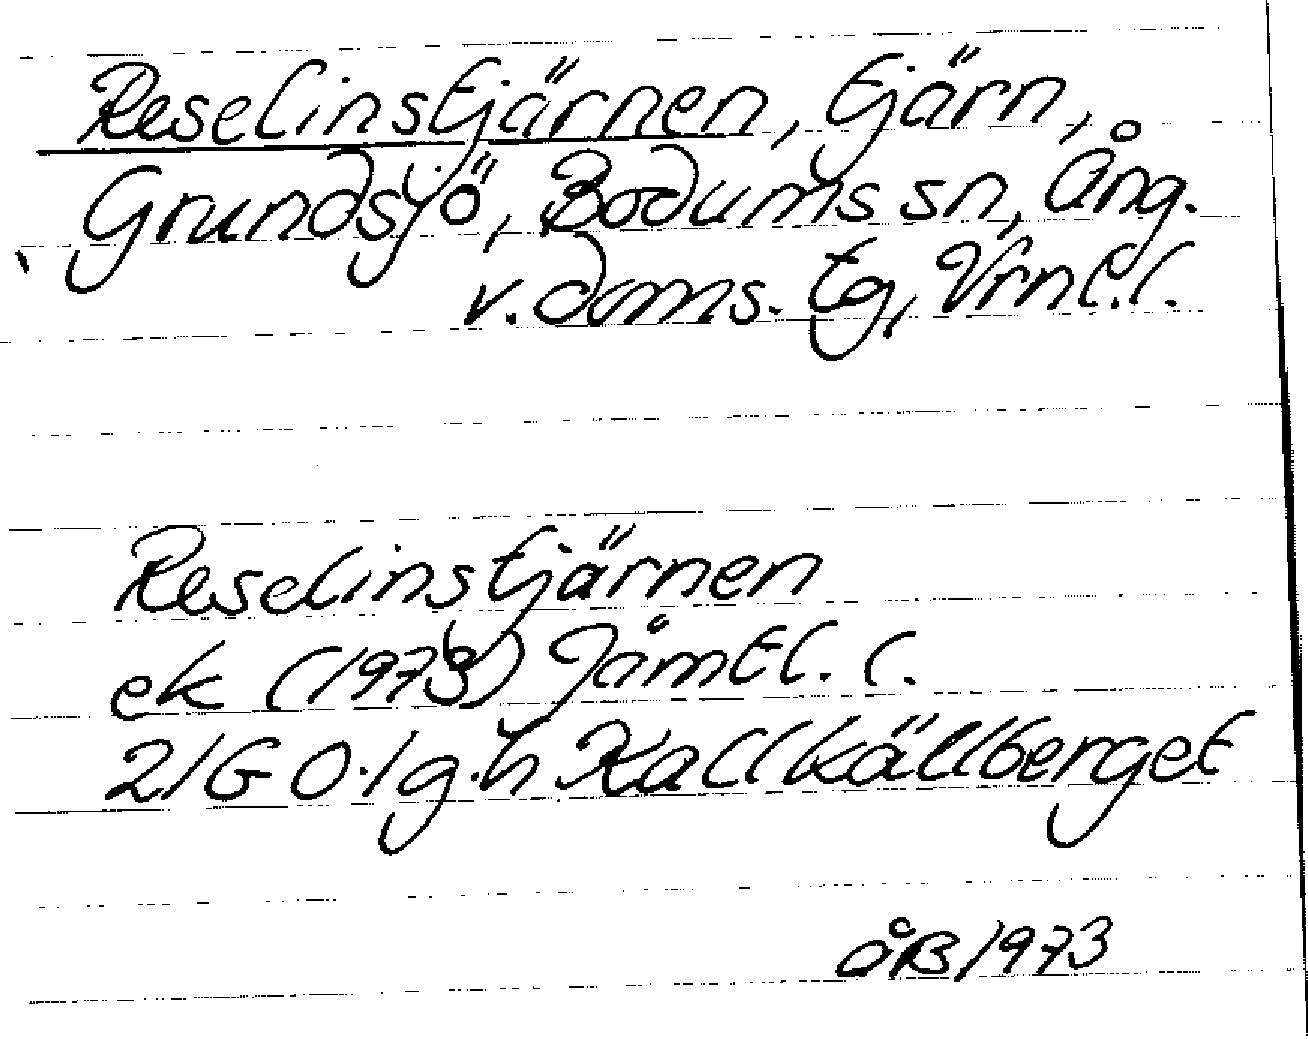 Reselinstjärnen, tjärn,
Grundsjö, Bodums sn, Ång.
v. doms. tg, Vrnl.l.
Reselinstjärnen
ek (1973) Jämtl. l.
21G 0.1 g.h Kallkällberget
ÅB 1973